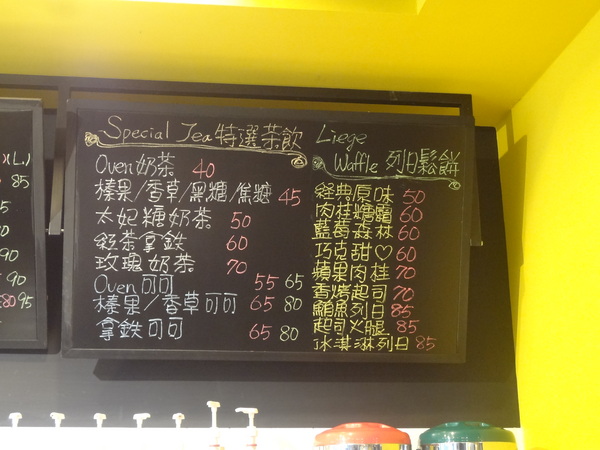 Special Tea 特選茶飲
Oven奶茶 40
榛果/香草/黑糖/焦糖 45
太妃糖奶茶 50
紅茶拿鐵 60
玫瑰奶茶 70
Oven可可 55 65
榛果/香草可可 65 80
拿鐵可可 65 80
Liege
Waffle 列日鬆餅
經典原味 50
肉桂糖霜 60
藍莓森林 60
巧克甜♡ 60
蘋果肉桂 70
香烤起司 70
鮪魚列日 85
起司火腿 85
冰淇淋列日 85
(L)
85
5
0
90
90
80 95